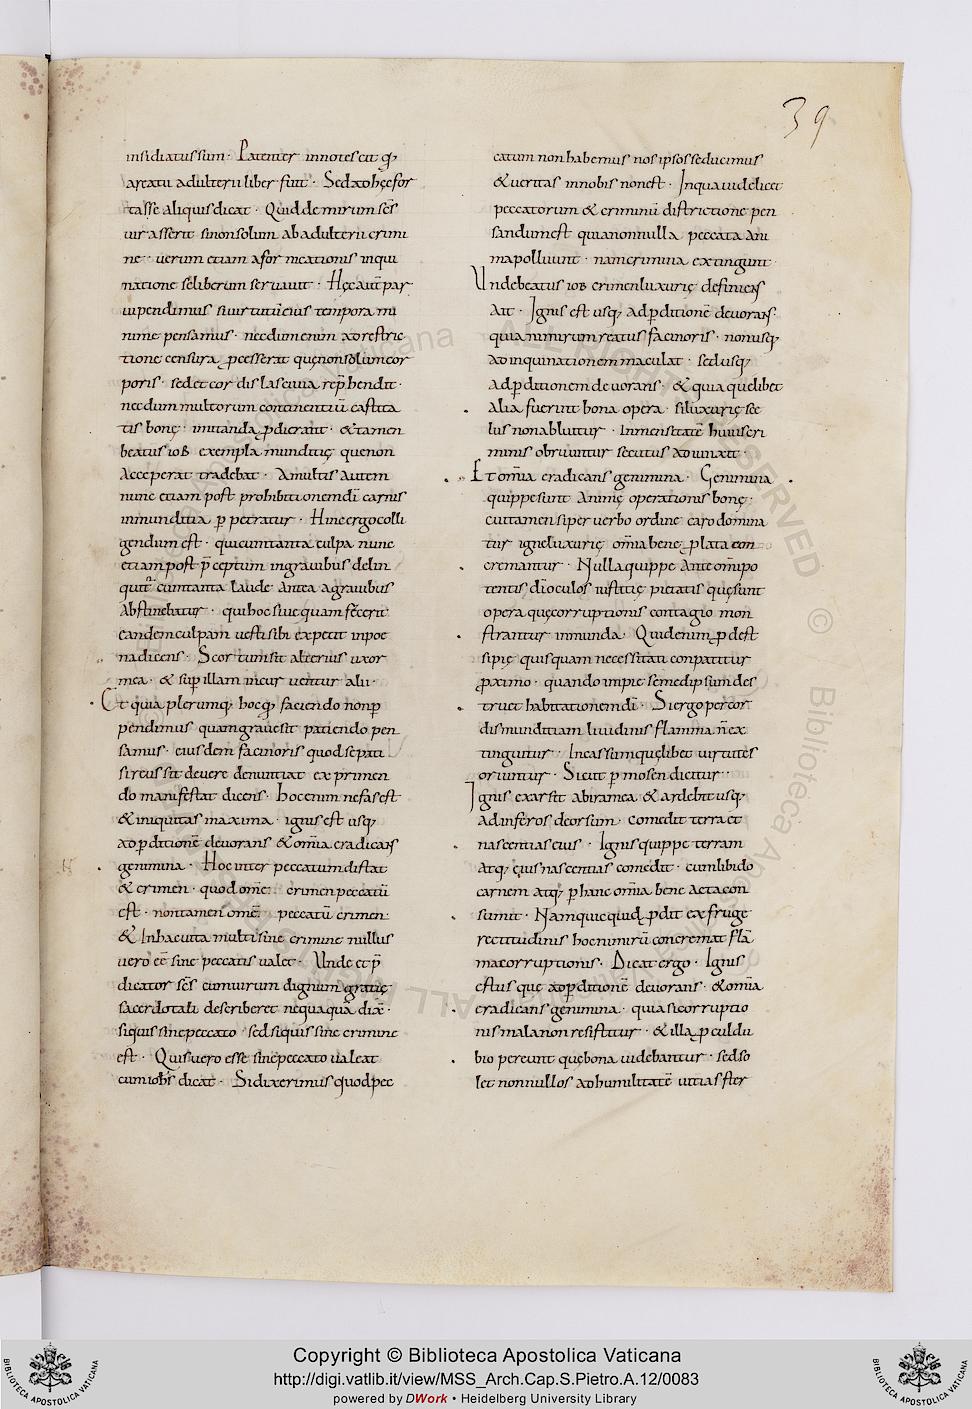 39
insidiatus sum · Patenter innotescit qđ
a reatu adulterii liber fuit · Sed adhęc for
tasse aliquis dicat · Quid de mirum scs̄
uir asserit si non solum ab adulterii crimi
ne · uerum etiam a fornicationis inqui
natione se liberum seruauit · Hęc aut̄ par
uipendimus si uirtutū eius tempora mi
nime pensamus · necdum enim ad restric
tione censura p̄cesserat quę non solum cor
poris · sed et cordis lasciuia rep̄hendit ·
necdum multorum continentiū castita
tis bonę · imitanda p̄dierant · & tamen
beatus iob exempla munditię que non
acceperat tradebat · A multis autem
nunc etiam post prohibitionem dī carnis
inmunditia ꝑpetratur · Hinc ergo colli
gendum est · qui cum tanta culpa nunc
etiam post p̄ceptum in grauibus delin
quit cum tanta laude antea a grauibus
abstinebatur · qui hoc siue quam fecerit
eandem culpam uesti sibi expetit in poe
na dicens · Scortum sit alterius uxor
mea · & sup̄ illam incuruentur alii ·
Et quia plerumq; hoc qđ faciendo non ꝑ
pendimus quam graue sit patiendo pen
samus · eiusdem facinoris quod se pati
si reus sit deuere denuntiat exprimen
do manifestat dicens · hoc enim nefas est
& iniquitas maxima · ignis est usq;
ad ꝑditionē deuorans & om̄ia eradicans
genimina · Hoc inter peccatum distat
& crimen · quod om̄e crimen peccatū
est · non tamen omē peccatū crimen ·
& In hac uita multi sine crimine nullus
uero eē sine peccatis ualet · Unde et p̄
dicator scs̄ cum uirum dignum gratię
sacerdotali describeret nequaquā dix̄ ·
siquis sine peccato · sed siquis sine crimine
est · Quis uero esse sine peccato ualeat
cum iohs̄ dicat · Si dixerimus quod pec
catum non habemus nos ipsos seducimus
& ueritas in nobis non est · In qua uidelicet
peccatorum & criminū districtione pen
sandum est quia nonnulla peccata ani
ma polluunt · nam crimina extingunt ·
Unde beatus iob crimen luxurię definiens
ait · Ignis est usq; ad ꝑditionē deuorans
quia nimirum reatus facinoris · non usq;
ad inquinationem maculat · sed usq;
ad ꝑditionem deuorans · & quia quelibet
alia fuerint bona opera · si luxurię sce
lus non abluitur · Inmensitatē huius cri
minis obruuntur secutus adiunxit ·
Et om̄ia eradicans genimina · Genimina
quippe sunt animę operationis bonę ·
cui tamen si peruerso ordine caro domina
tur igne luxurię om̄ia bene p̄lata con
cremantur · Nulla quippe ante om̄ipo
tentis dī oculos iustitię pietatis quę sunt
opera quę corruptionis contagio mon
strantur inmunda · Quid enim ꝓdest
si pię quisquam necessitati conpatitur
ꝓximo · quando impie semedipsum des
truet habitationem dī · Si ergo per cor
dis munditiam libidinis flamma ñ ex
tinguitur · Incassum quęlibet uirtutes
oriuntur · Sicut ꝑ mosen dicitur ·
Ignis exarsit ab ira mea & ardebit usq;
ad inferos deorsum · Comedit terra et
nascentias eius · Ignis quippe terram
atq; eius nascentias comedit · cum libido
carnem atq; ꝑ hanc om̄ia bene acta con
sumit · Nam quicquid p̄dit ex fruge
rectitudinis hoc nimirū concremat flā
ma corruptionis · Dicat ergo · Ignis
estusque ad ꝑditionē deuorans · & om̄ia
eradicans genimina · quia si corruptio
nis mala non resistitur · & illa ꝓculdu
bio pereunt quę bona uidebantur · sed so
let nonnullos ad humilitatē uitias ster
Copyright © Biblioteca Apostolica Vaticana
http://digi.vatlib.it/view/MSS_Arch.Cap.S.Pietro.A.12/0083
powered by DWork • Heidelberg University Library